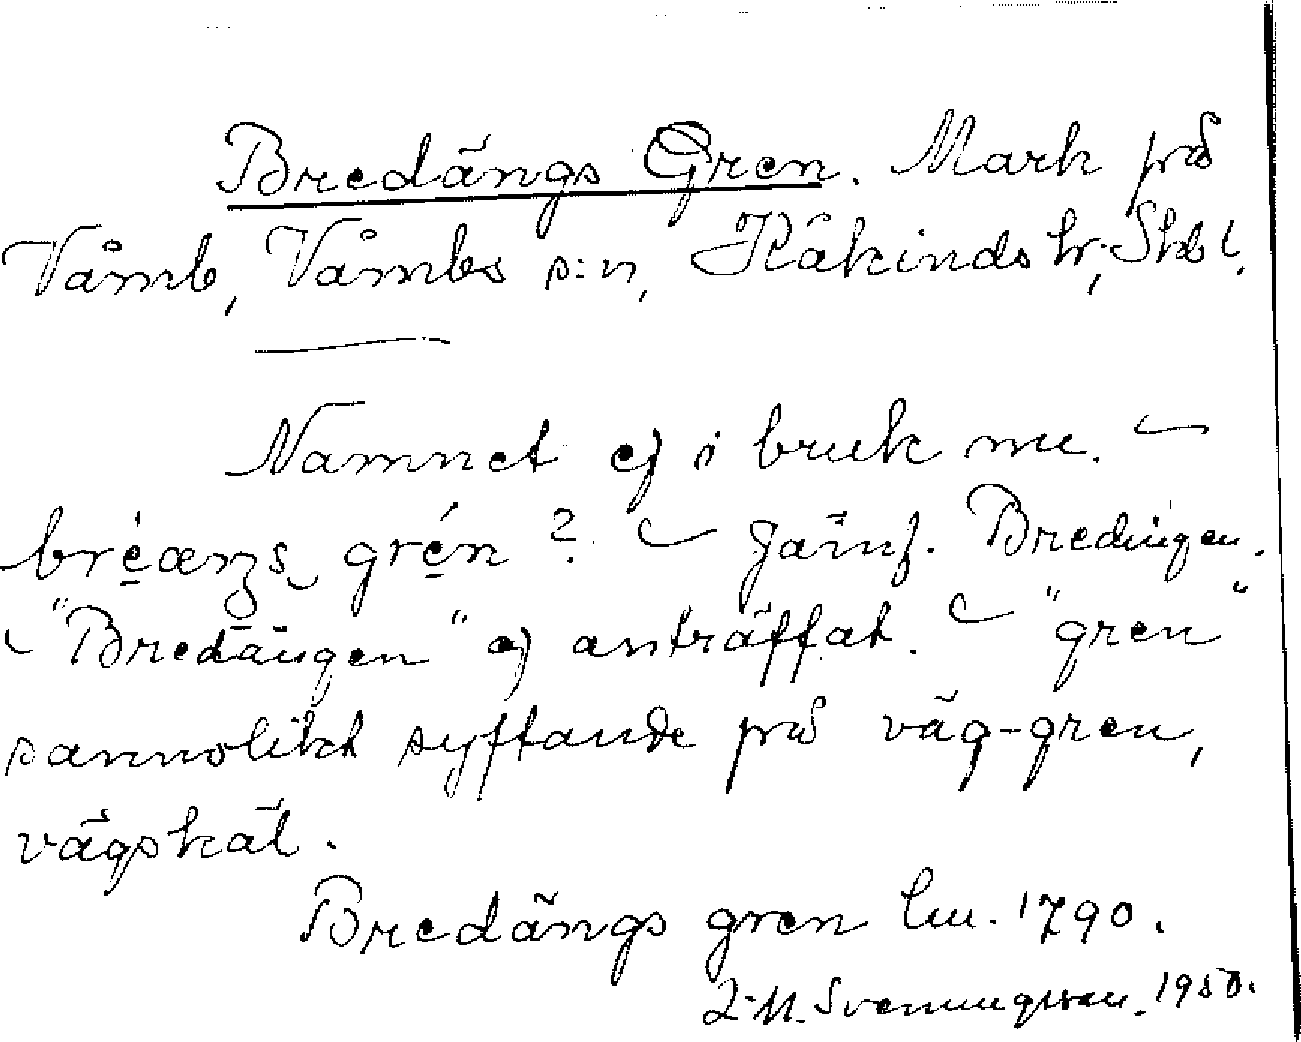 Bredängs Gren. Mark på
Våmb, Våmbs s:n, Kåkinds hr, Skbl.
Namnet ej i bruk nu. –
grén ? – Jämf. Bredängen.
– "Bredängen" ej anträffat. – "gren"
sannolikt syftande på väg-gren,
vägskäl.
Bredängs gren lm. 1790.
Svenungsson. 1950.